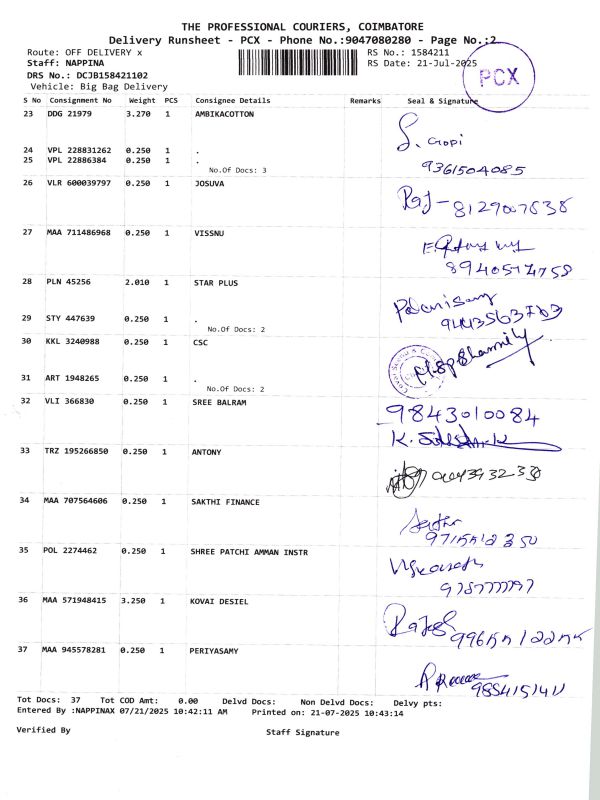 THE PROFESSIONAL COURIERS, COIMBATORE
Delivery Runsheet - PCX - Phone No.:9047080280 - Page No.:2
Route: OFF DELIVERY x RS No.: 1584211
Staff: NAPPINA RS Date: 21-Jul-2025
DRS No.: DCJB158421102
PCX
Vehicle: Big Bag Delivery
S No Consignment No Weight PCS Consignee Details Remarks Seal & Signature
23 DDG 21979 3.270 1 AMBIKACOTTON
S. Gopi
24 VPL 228831262 0.250 1 .
25 VPL 22886384 0.250 1 .
9361504085
No.Of Docs: 3
26 VLR 600039797 0.250 1 JOSUVA
27 MAA 711486968 0.250 1 VISSNU
28 PLN 45256 2.010 1 STAR PLUS
29 STY 447639 0.250 1 .
No.Of Docs: 2
30 KKL 3240988 0.250 1 CSC
31 ART 1948265 0.250 1 .
No.Of Docs: 2
32 VLI 366830 0.250 1 SREE BALRAM
9843010084
33 TRZ 195266850 0.250 1 ANTONY
34 MAA 707564606 0.250 1 SAKTHI FINANCE
35 POL 2274462 0.250 1 SHREE PATCHI AMMAN INSTR
36 MAA 571948415 3.250 1 KOVAI DESIEL
37 MAA 945578281 0.250 1 PERIYASAMY
Tot Docs: 37 Tot COD Amt: 0.00 Delvd Docs: Non Delvd Docs: Delvy pts:
Entered By :NAPPINAX 07/21/2025 10:42:11 AM Printed on: 21-07-2025 10:43:14
Verified By Staff Signature